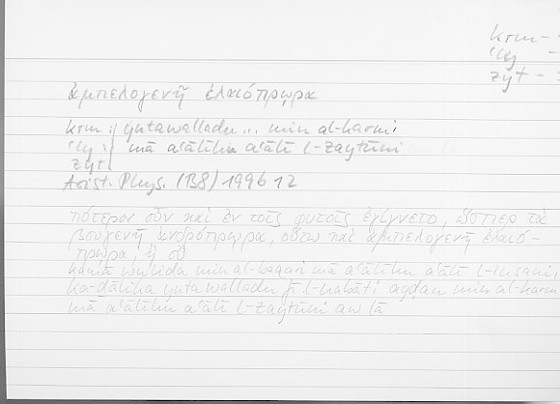 krm –
ʿly –
zyt –
ἀμπελογενῆ ἐλαιόπρῳρα
krm : yutawalladu... min al-karmi
ʿly : mā aʿālīhi aʿālī l-zaytūni
zyt
Arist. Phys. (B8) 199b12
πότερον οὖν καὶ ἐν τοῖς φυτοῖς ἐγίγνετο, ὥσπερ τὰ
βουγενῆ ἀνδρόπρῳρα, οὕτω καὶ ἀμπελογενῆ ἐλαιό-
πρῳρα, ἢ οὔ
kamā wulida min al-baqari mā aʿālīhi aʿālī l-insāni,
ka-ḏālika yutawalladu fī l-nabāti ayḍan min al-karm
mā aʿālīhi aʿālī l-zaytūni aw lā